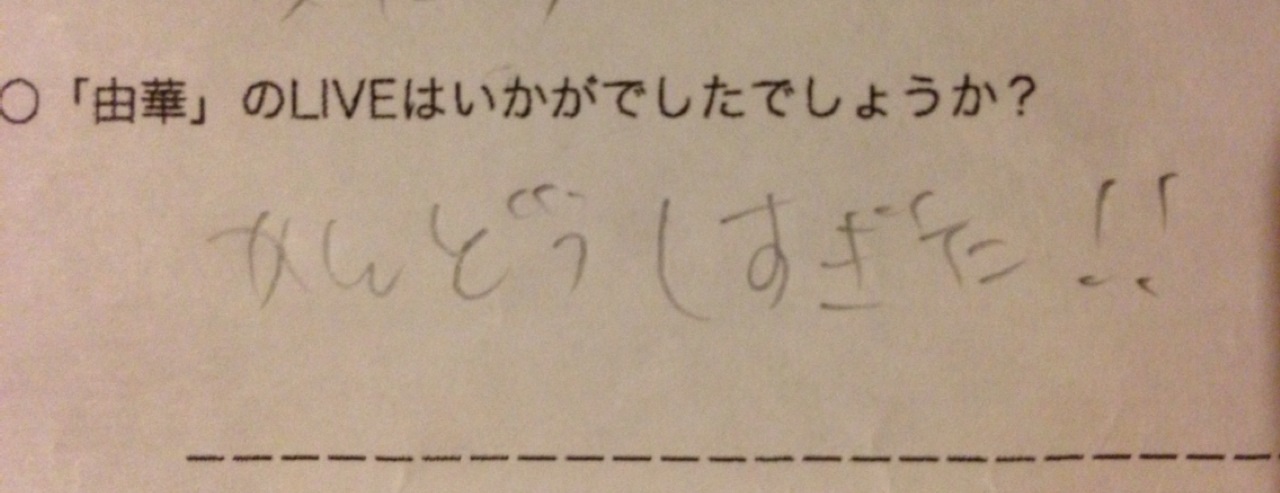 ○「由華」のLIVEはいかがでしたでしょうか？
かんどうしすぎた!!